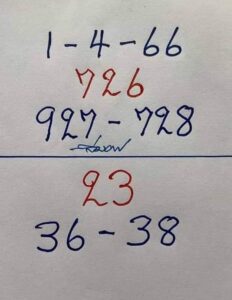 1 - 4 - 66
726
927 - 728
23
36 - 38